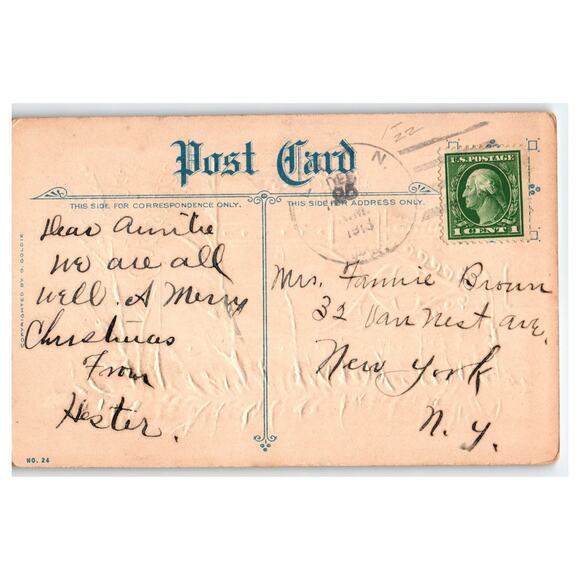 Post Card
THIS SIDE FOR CORRESPONDENCE ONLY.
THIS SIDE FOR ADDRESS ONLY.
DEC
1913
U.S. POSTAGE
1 CENT 1
Dear Auntie
We are all
well. A Merry
Christmas
From
Hester.
Mrs. Fannie Brown
32 Van Nest ave.
New York
N. Y.
NO. 24